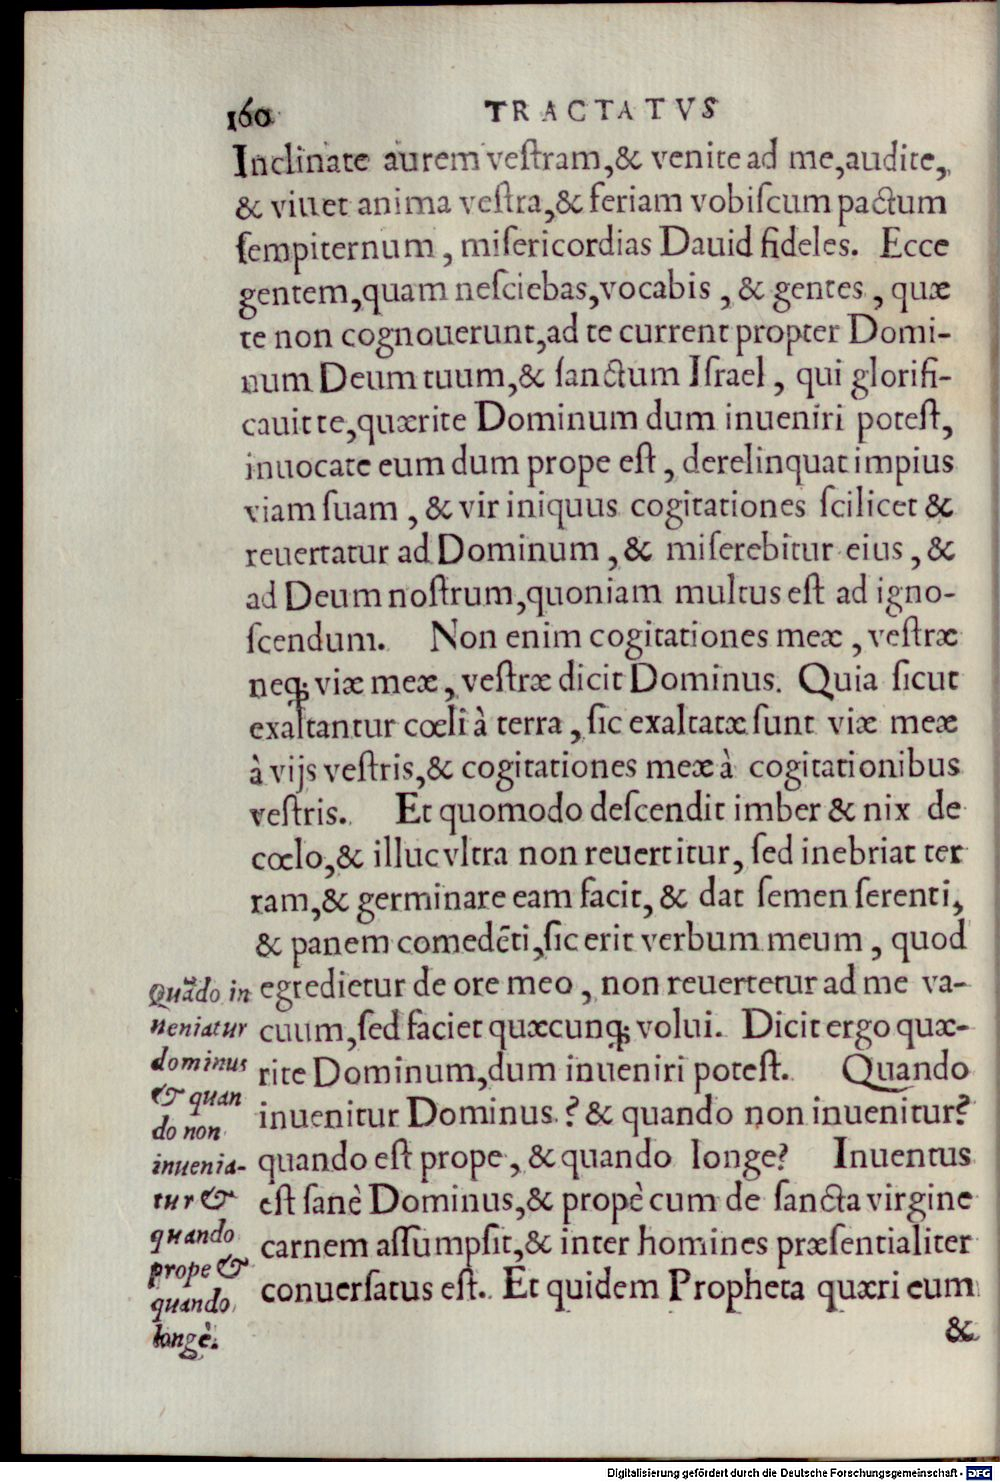 160 TRACTATVS
Inclinate aurem veſtram,& venite ad me,audite,
& viuet anima veſtra,& feriam vobiſcum pactum
ſempiternum, miſericordias Dauid fideles. Ecce
gentem,quam neſciebas,vocabis, & gentes, quæ
te non cognouerunt,ad te current propter Domi-
num Deum tuum,& ſanctum Iſrael, qui glorifi-
cauit te,quærite Dominum dum inueniri poteſt,
inuocate eum dum prope eſt, derelinquat impius
viam ſuam, & vir iniquus cogitationes ſcilicet &
reuertatur ad Dominum, & miſerebitur eius, &
ad Deum noſtrum,quoniam multus eſt ad igno-
ſcendum. Non enim cogitationes meæ, veſtræ
neq; viæ meæ, veſtræ dicit Dominus. Quia ſicut
exaltantur cœli à terra, ſic exaltatæ ſunt viæ meæ
à vijs veſtris,& cogitationes meæ à cogitationibus
veſtris. Et quomodo deſcendit imber & nix de
cœlo,& illuc vltra non reuertitur, ſed inebriat ter
ram,& germinare eam facit, & dat ſemen ſerenti,
& panem comedẽti,ſic erit verbum meum, quod
egredietur de ore meo, non reuertetur ad me va-
cuum,ſed faciet quæcunq; volui. Dicit ergo quæ-
rite Dominum,dum inueniri poteſt. Quando
inuenitur Dominus? & quando non inuenitur?
quando eſt prope, & quando longe? Inuentus
eſt ſanè Dominus,& propè cum de ſancta virgine
carnem aſſumpſit,& inter homines præſentialiter
conuerſatus eſt. Et quidem Propheta quæri eum
&
Quãdo in
ueniatur
dominus
& quan
do non
inuenia-
tur &
quando
prope &
quando
longè.
Digitalisierung gefördert durch die Deutsche Forschungsgemeinschaft - DFG